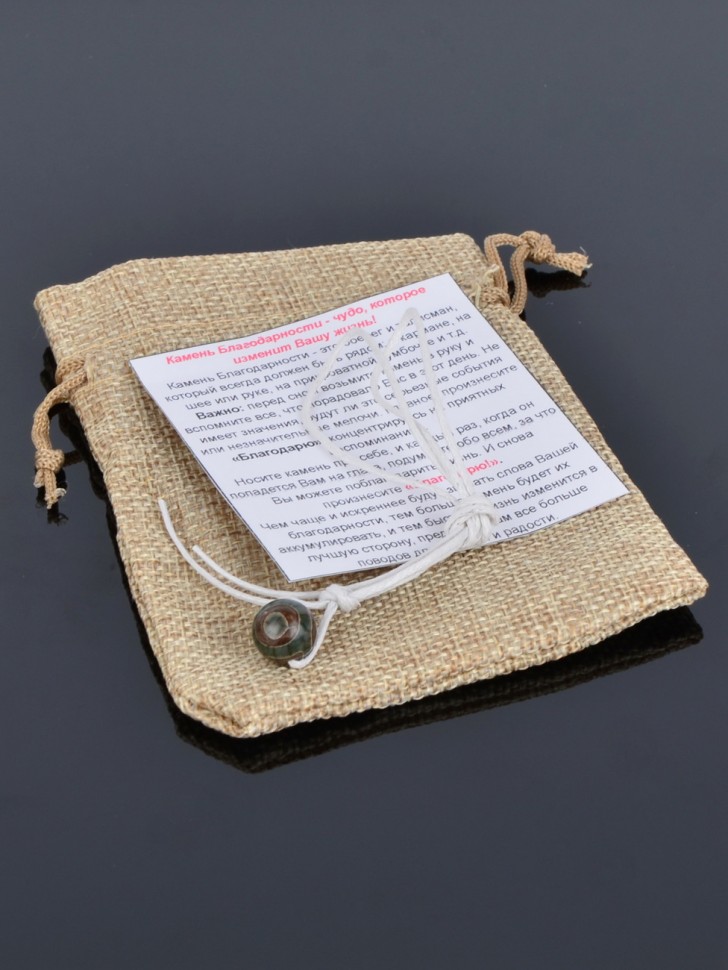 Камень Благодарности - чудо, которое
изменит Вашу жизнь!
Камень Благодарности - это оберег и талисман,
который всегда должен быть рядом: в кармане, на
шее или руке, на прикроватной тумбочке и т.д.
Важно: перед сном возьмите камень в руку и
вспомните все, что порадовало Вас в этот день. Не
имеет значения, будут ли это серьезные события
или незначительные мелочи. Главное произнесите
«Благодарю» концентрируясь на приятных
воспоминаниях.
Носите камень при себе, и каждый раз, когда он
попадется Вам на глаза, подумайте обо всем, за что
Вы можете поблагодарить жизнь. И снова
произнесите «Благодарю!».
Чем чаще и искреннее будут звучать слова Вашей
благодарности, тем больше камень будет их
аккумулировать, и тем быстрее жизнь изменится в
лучшую сторону, Вам все больше
поводов для и радости.